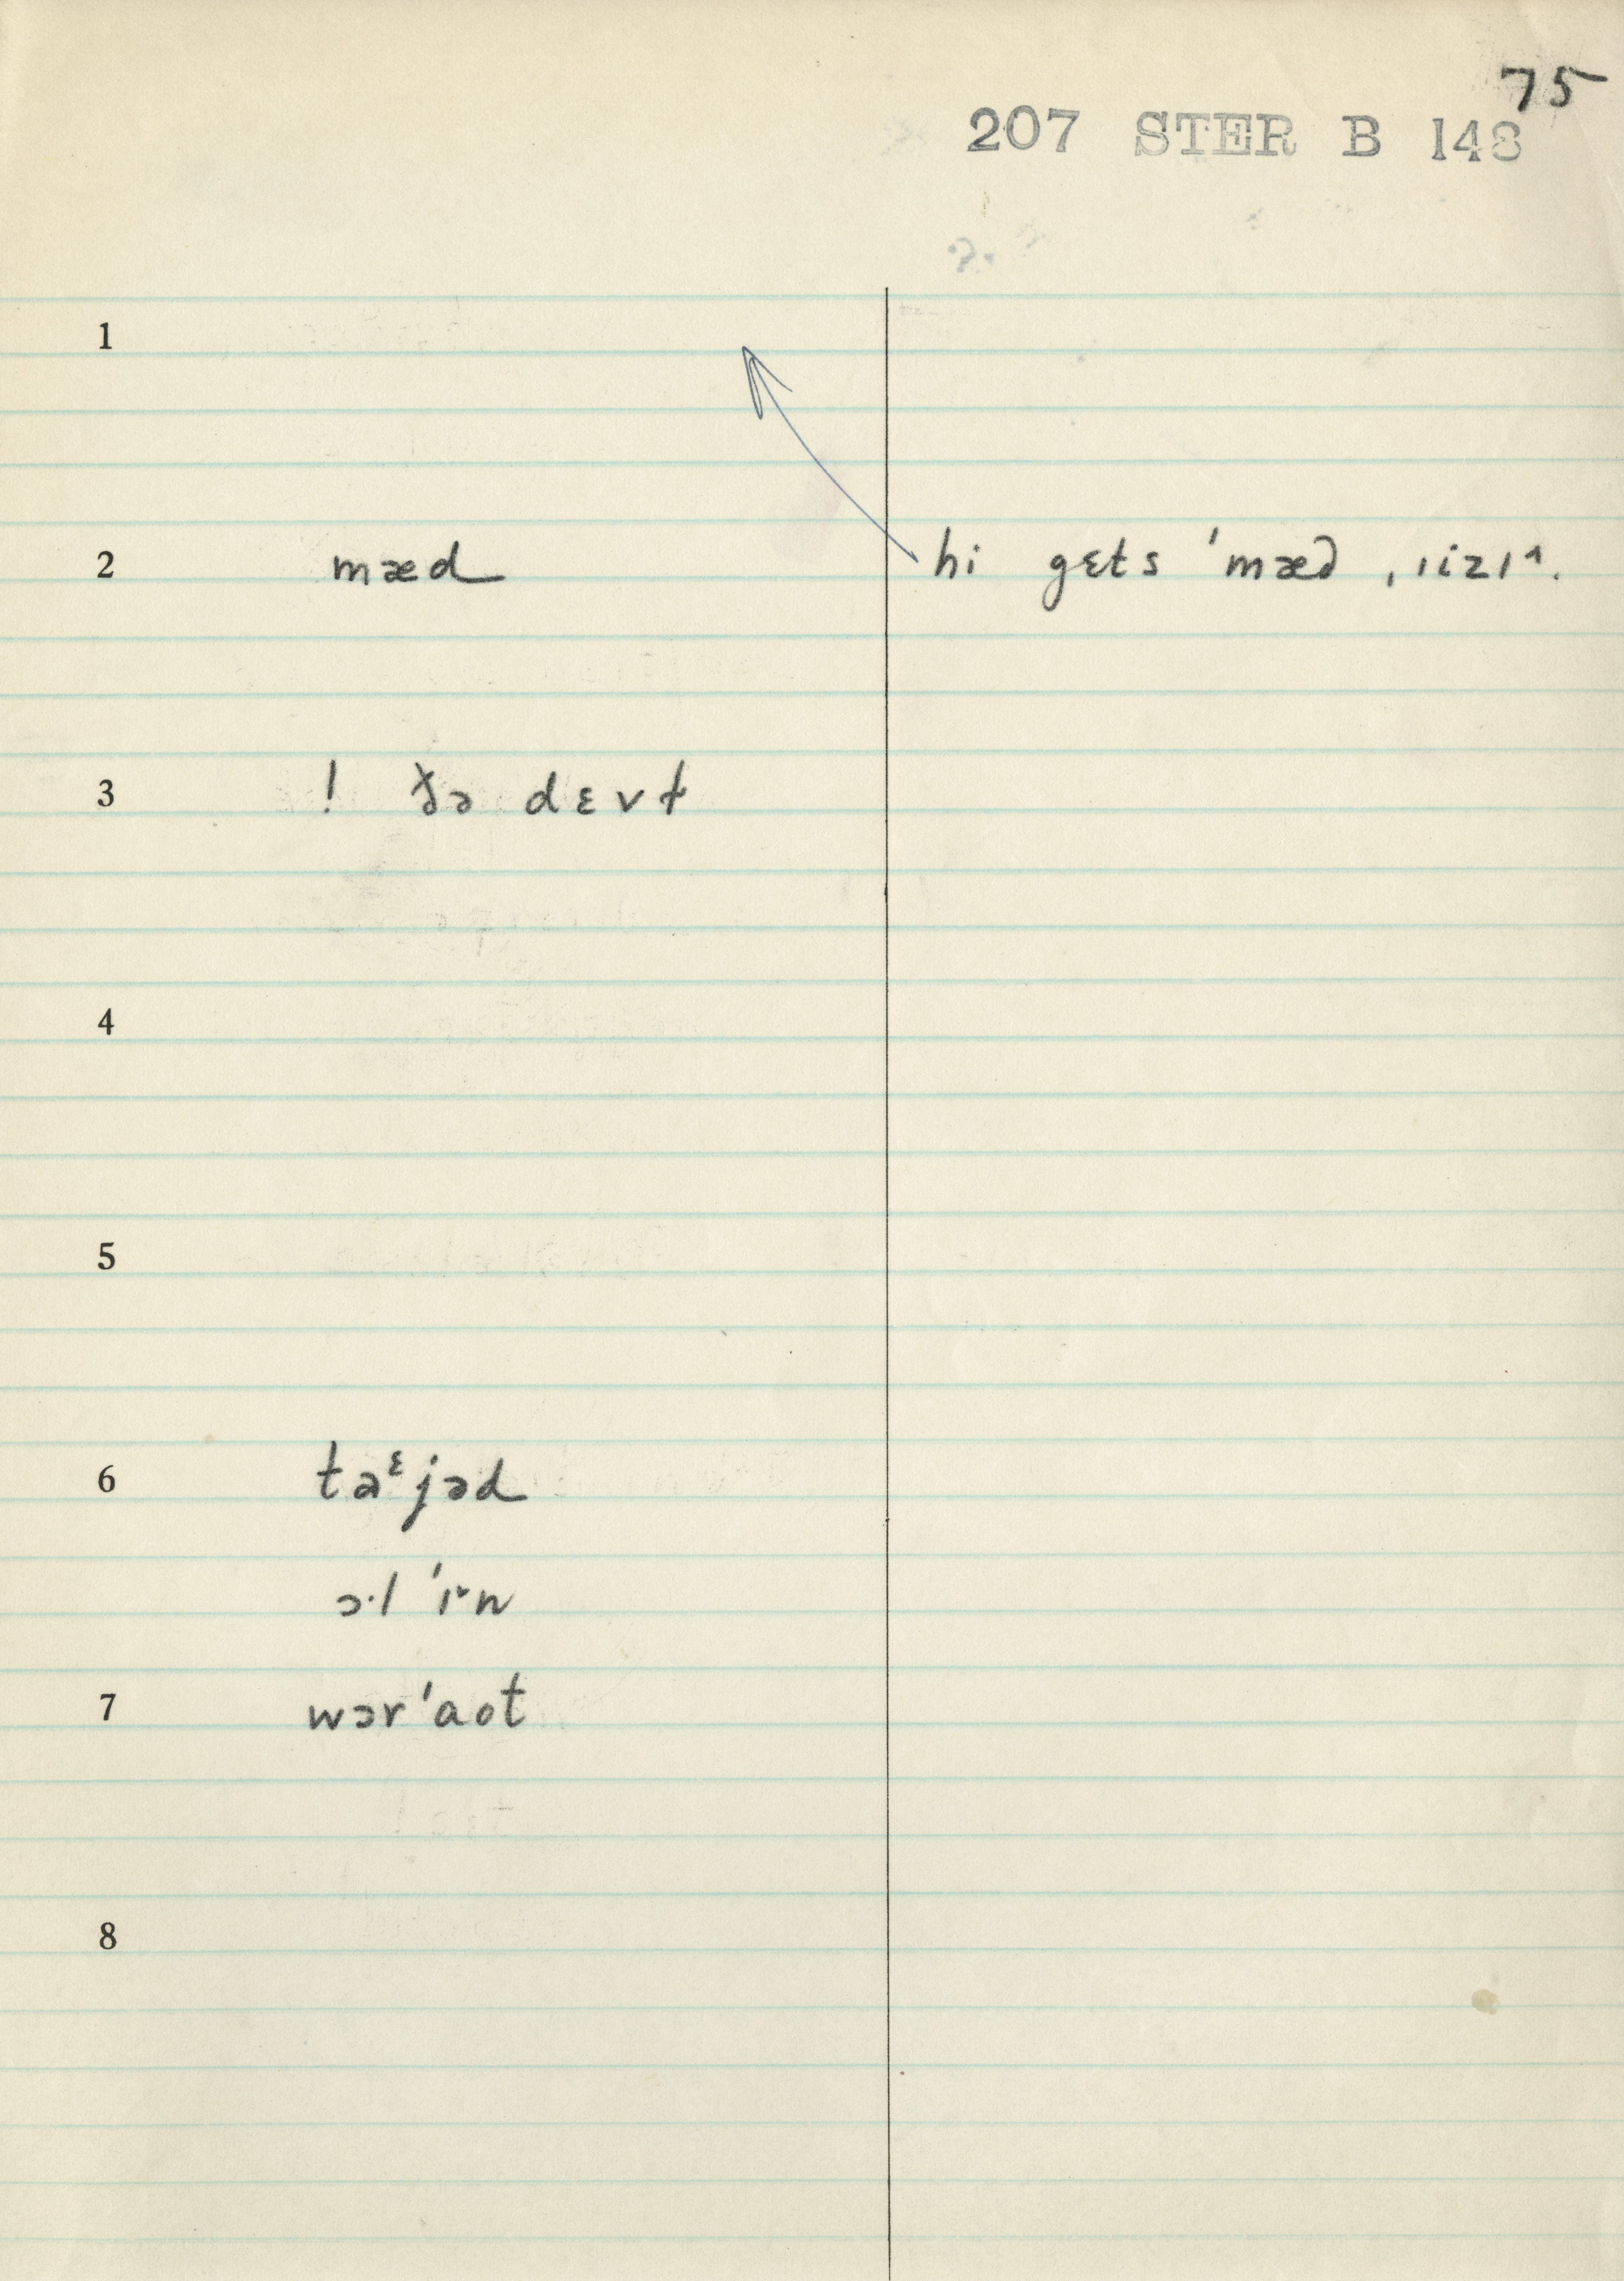 75
207 STER B 148
1
2 mæd hi gɛts ˈmæd ˌɪizɪ^.
3 ! ðə dɛvɫ
4
5
6 taᵋjəd
ɔ·l ˈɪ˞n
7 wɔrˈaot
8